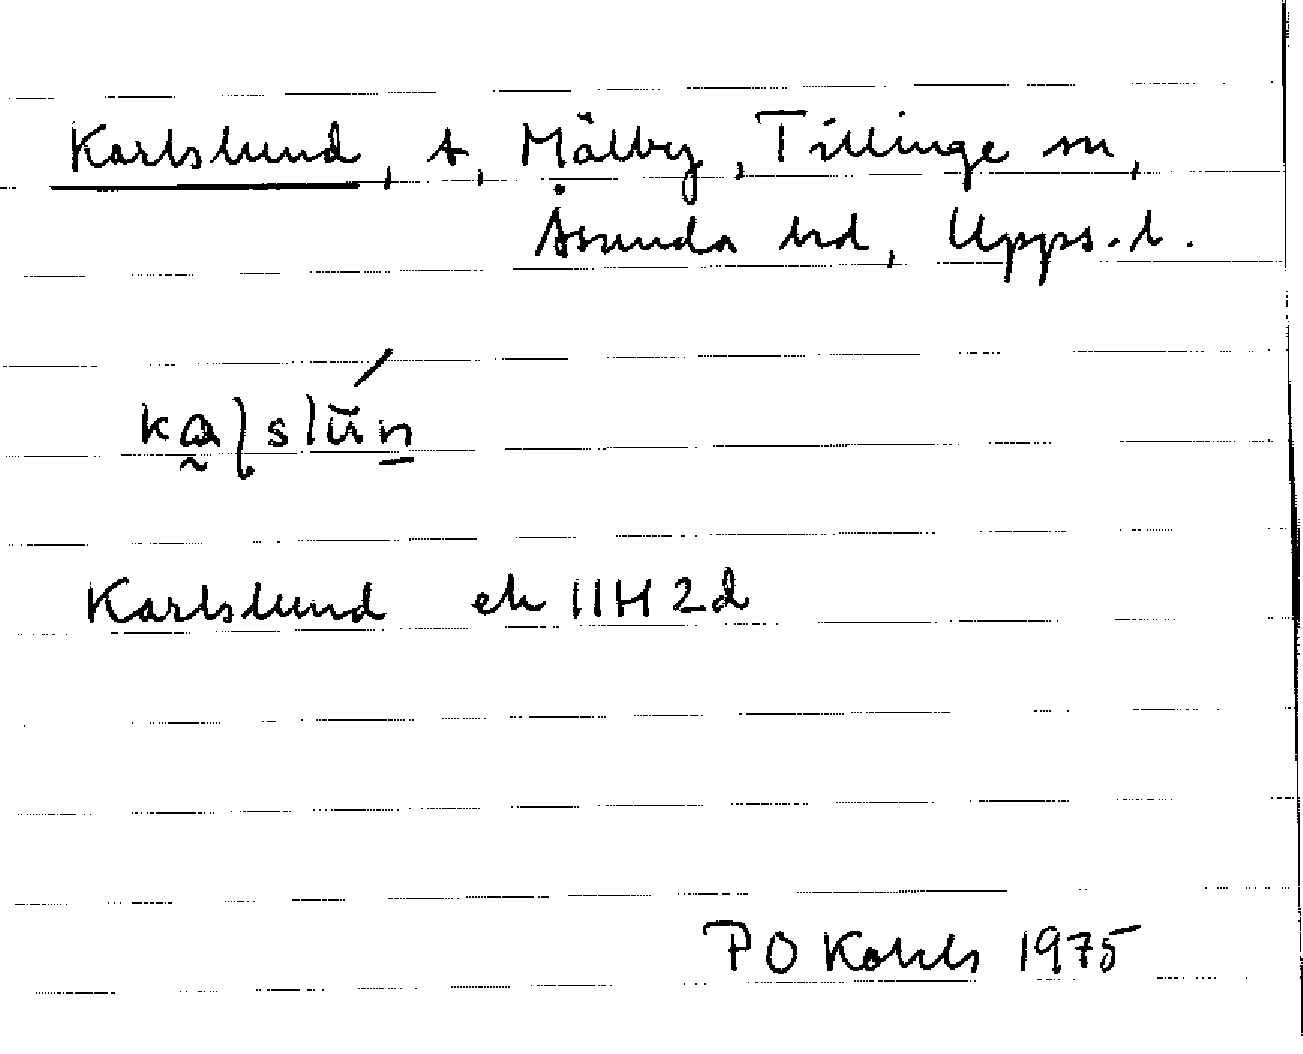 Karlslund, t, Mälby, Tillinge sn,
Åsunda hd, Upps. l.
Karlslund ek 11H 2d
PO 1975